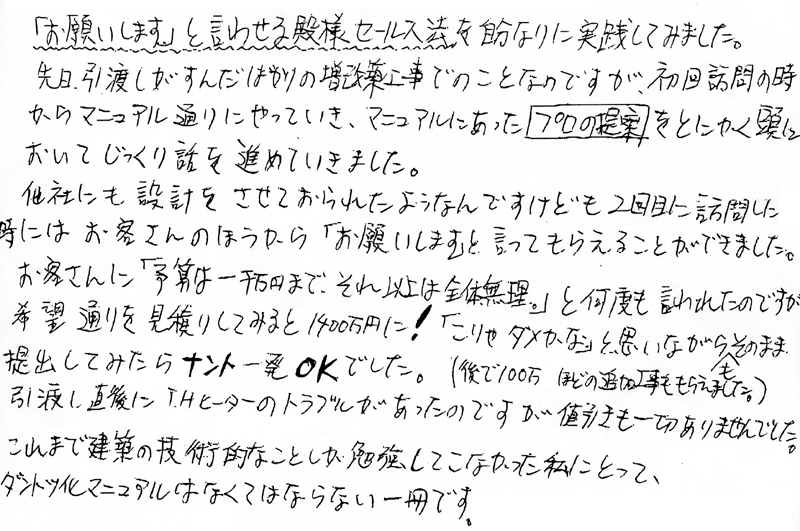 「お願いします」と言わせる殿様セールス法を自分なりに実践してみました。
先日、引渡しがすんだばかりの増改築工事でのことなのですが、初回訪問の時
からマニュアル通りにやっていき、マニュアルにあったプロの提案をとにかく頭に
おいてじっくり話を進めていきました。
他社にも設計をさせておられたようなんですけども2回目に訪問した
時にはお客さんのほうから「お願いします」と言ってもらえることができました。
お客さんに「予算は一千万円まで、それ以上は全体無理。」と何度も言われたのですが
希望通りを見積りしてみると1400万円に!「こりゃダメかな」と思いながらそのまま
提出してみたらナント一発OKでした。(後で100万ほどの追加工事ももらえました。)
引渡し直後にI.Hヒーターのトラブルがあったのですが値引きも一切ありませんでした。
これまで建築の技術的なことしか勉強してこなかった私にとって、
ダントツ化マニュアルはなくてはならない一冊です。